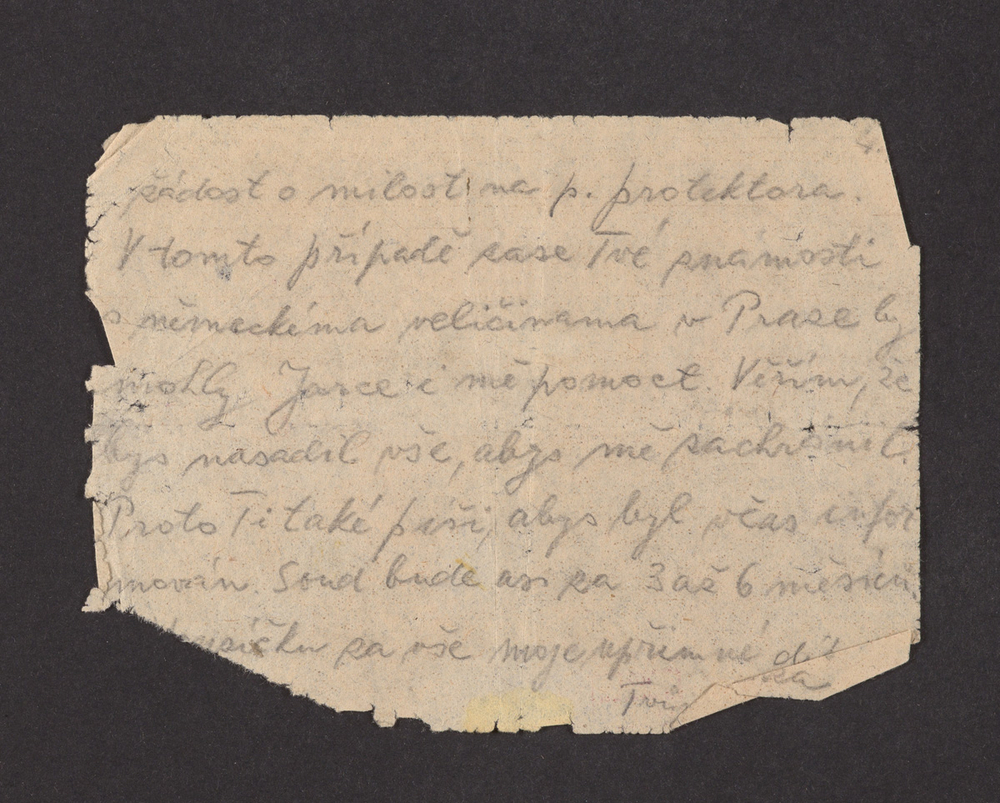 4.
žádost o milost na p. protektora.
V tomto případě zase Tvé známosti
s německéma veličinama v Praze by
mohly Jarce i mě pomoct. Věřím, že
bys nasadil vše, abys mě zachránil.
Proto Ti také píši, abys byl včas infor
mován. Soud bude asi za 3 až 6 měsíců
za vše moje upřimné
Tvůj